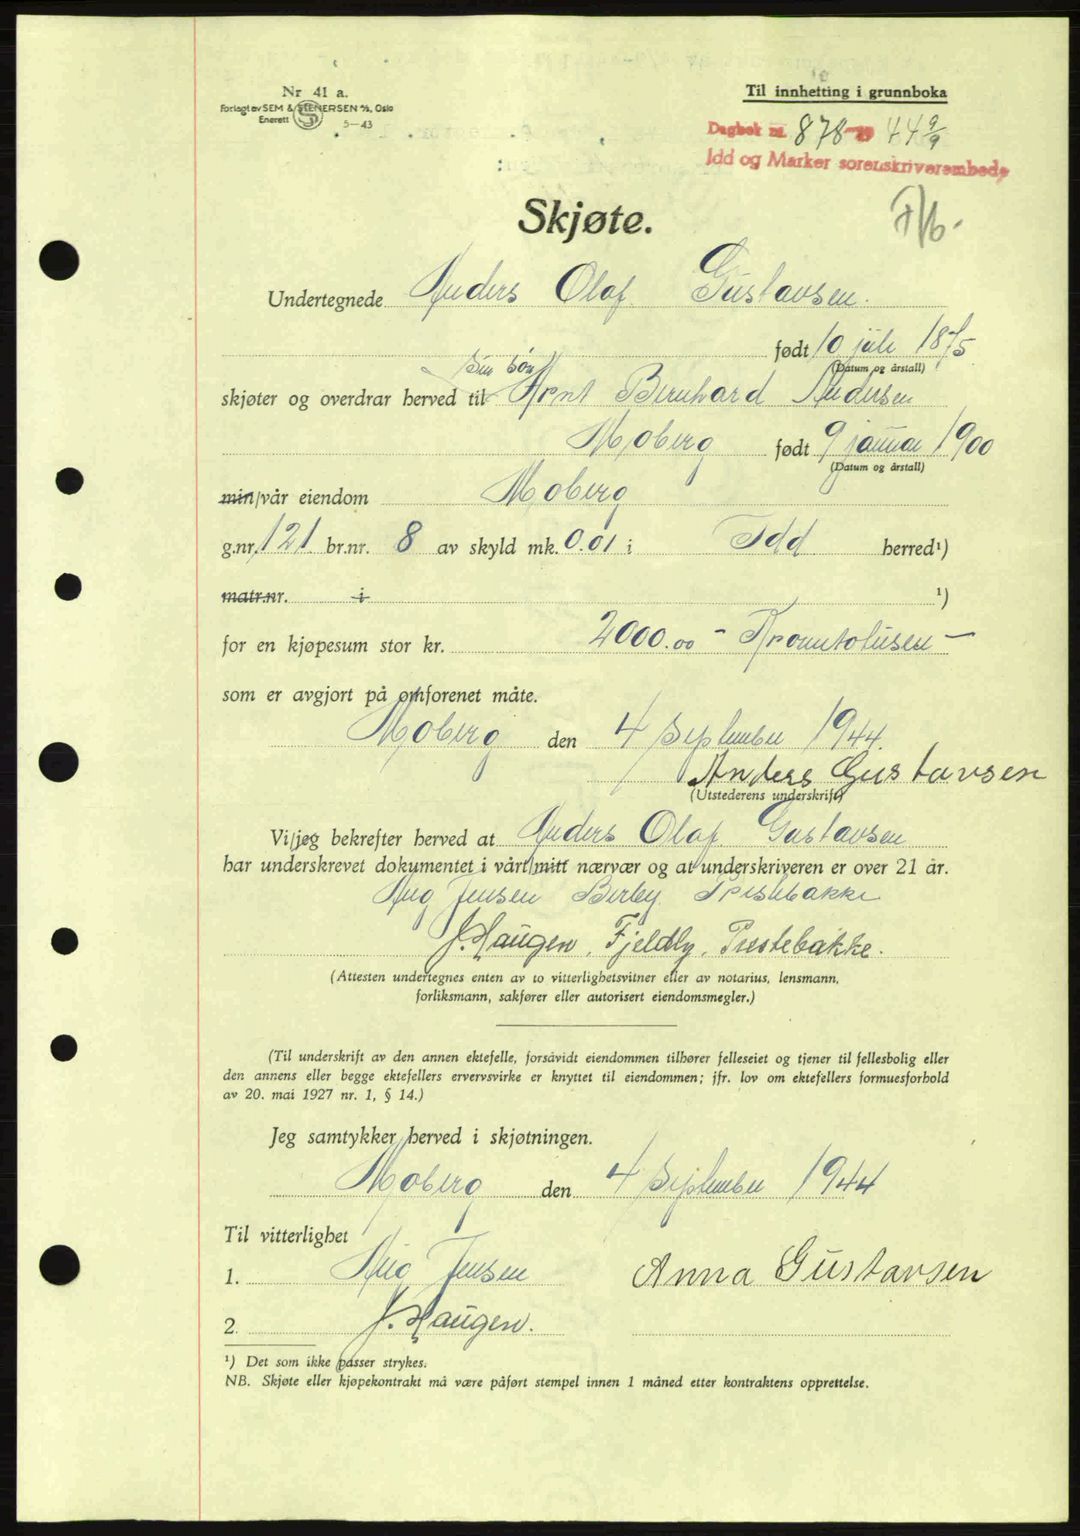 Nr 41 a.
Forlagt av SEM & STENERSEN A/S, Oslo
Enerett S 5-43
Til innhefting i grunnboka
Dagbok nr. 878 - 19 44 9/9
Idd og Marker sorenskriverembede
Skjøte.
Undertegnede Anders Olaf Gustavsen.
født 10 juli 1875
(Datum og årstall)
sin søn
skjøter og overdrar herved til Arnt Bernhard Andersen
Moberg født 9 januar 1900
(Datum og årstall)
min/vår eiendom Moberg
g.nr. 121 br.nr. 8 av skyld mk. 0.01 i Idd herred¹)
matr.nr. i ¹)
for en kjøpesum stor kr. 2000.00 - Kronertotusen -
som er avgjort på omforenet måte.
Moberg den 4 September 1944.
Anders Gustavsen
(Utstederens underskrift)
Vi/jeg bekrefter herved at Anders Olaf Gustavsen
har underskrevet dokumentet i vårt/mitt nærvær og at underskriveren er over 21 år.
Aug Jensen Berby Prestebakke
J. Haugen, Fjeldly, Prestebakke.
(Attesten undertegnes enten av to vitterlighetsvitner eller av notarius, lensmann,
forliksmann, sakfører eller autorisert eiendomsmegler.)
(Til underskrift av den annen ektefelle, forsåvidt eiendommen tilhører felleseiet og tjener til fellesbolig eller
den annens eller begge ektefellers ervervsvirke er knyttet til eiendommen; jfr. lov om ektefellers formuesforhold
av 20. mai 1927 nr. 1, § 14.)
Jeg samtykker herved i skjøtningen.
Moberg den 4 September 1944
Til vitterlighet
1. Aug Jensen Anna Gustavsen
2. J. Haugen.
¹) Det som ikke passer strykes.
NB. Skjøte eller kjøpekontrakt må være påført stempel innen 1 måned etter kontraktens opprettelse.